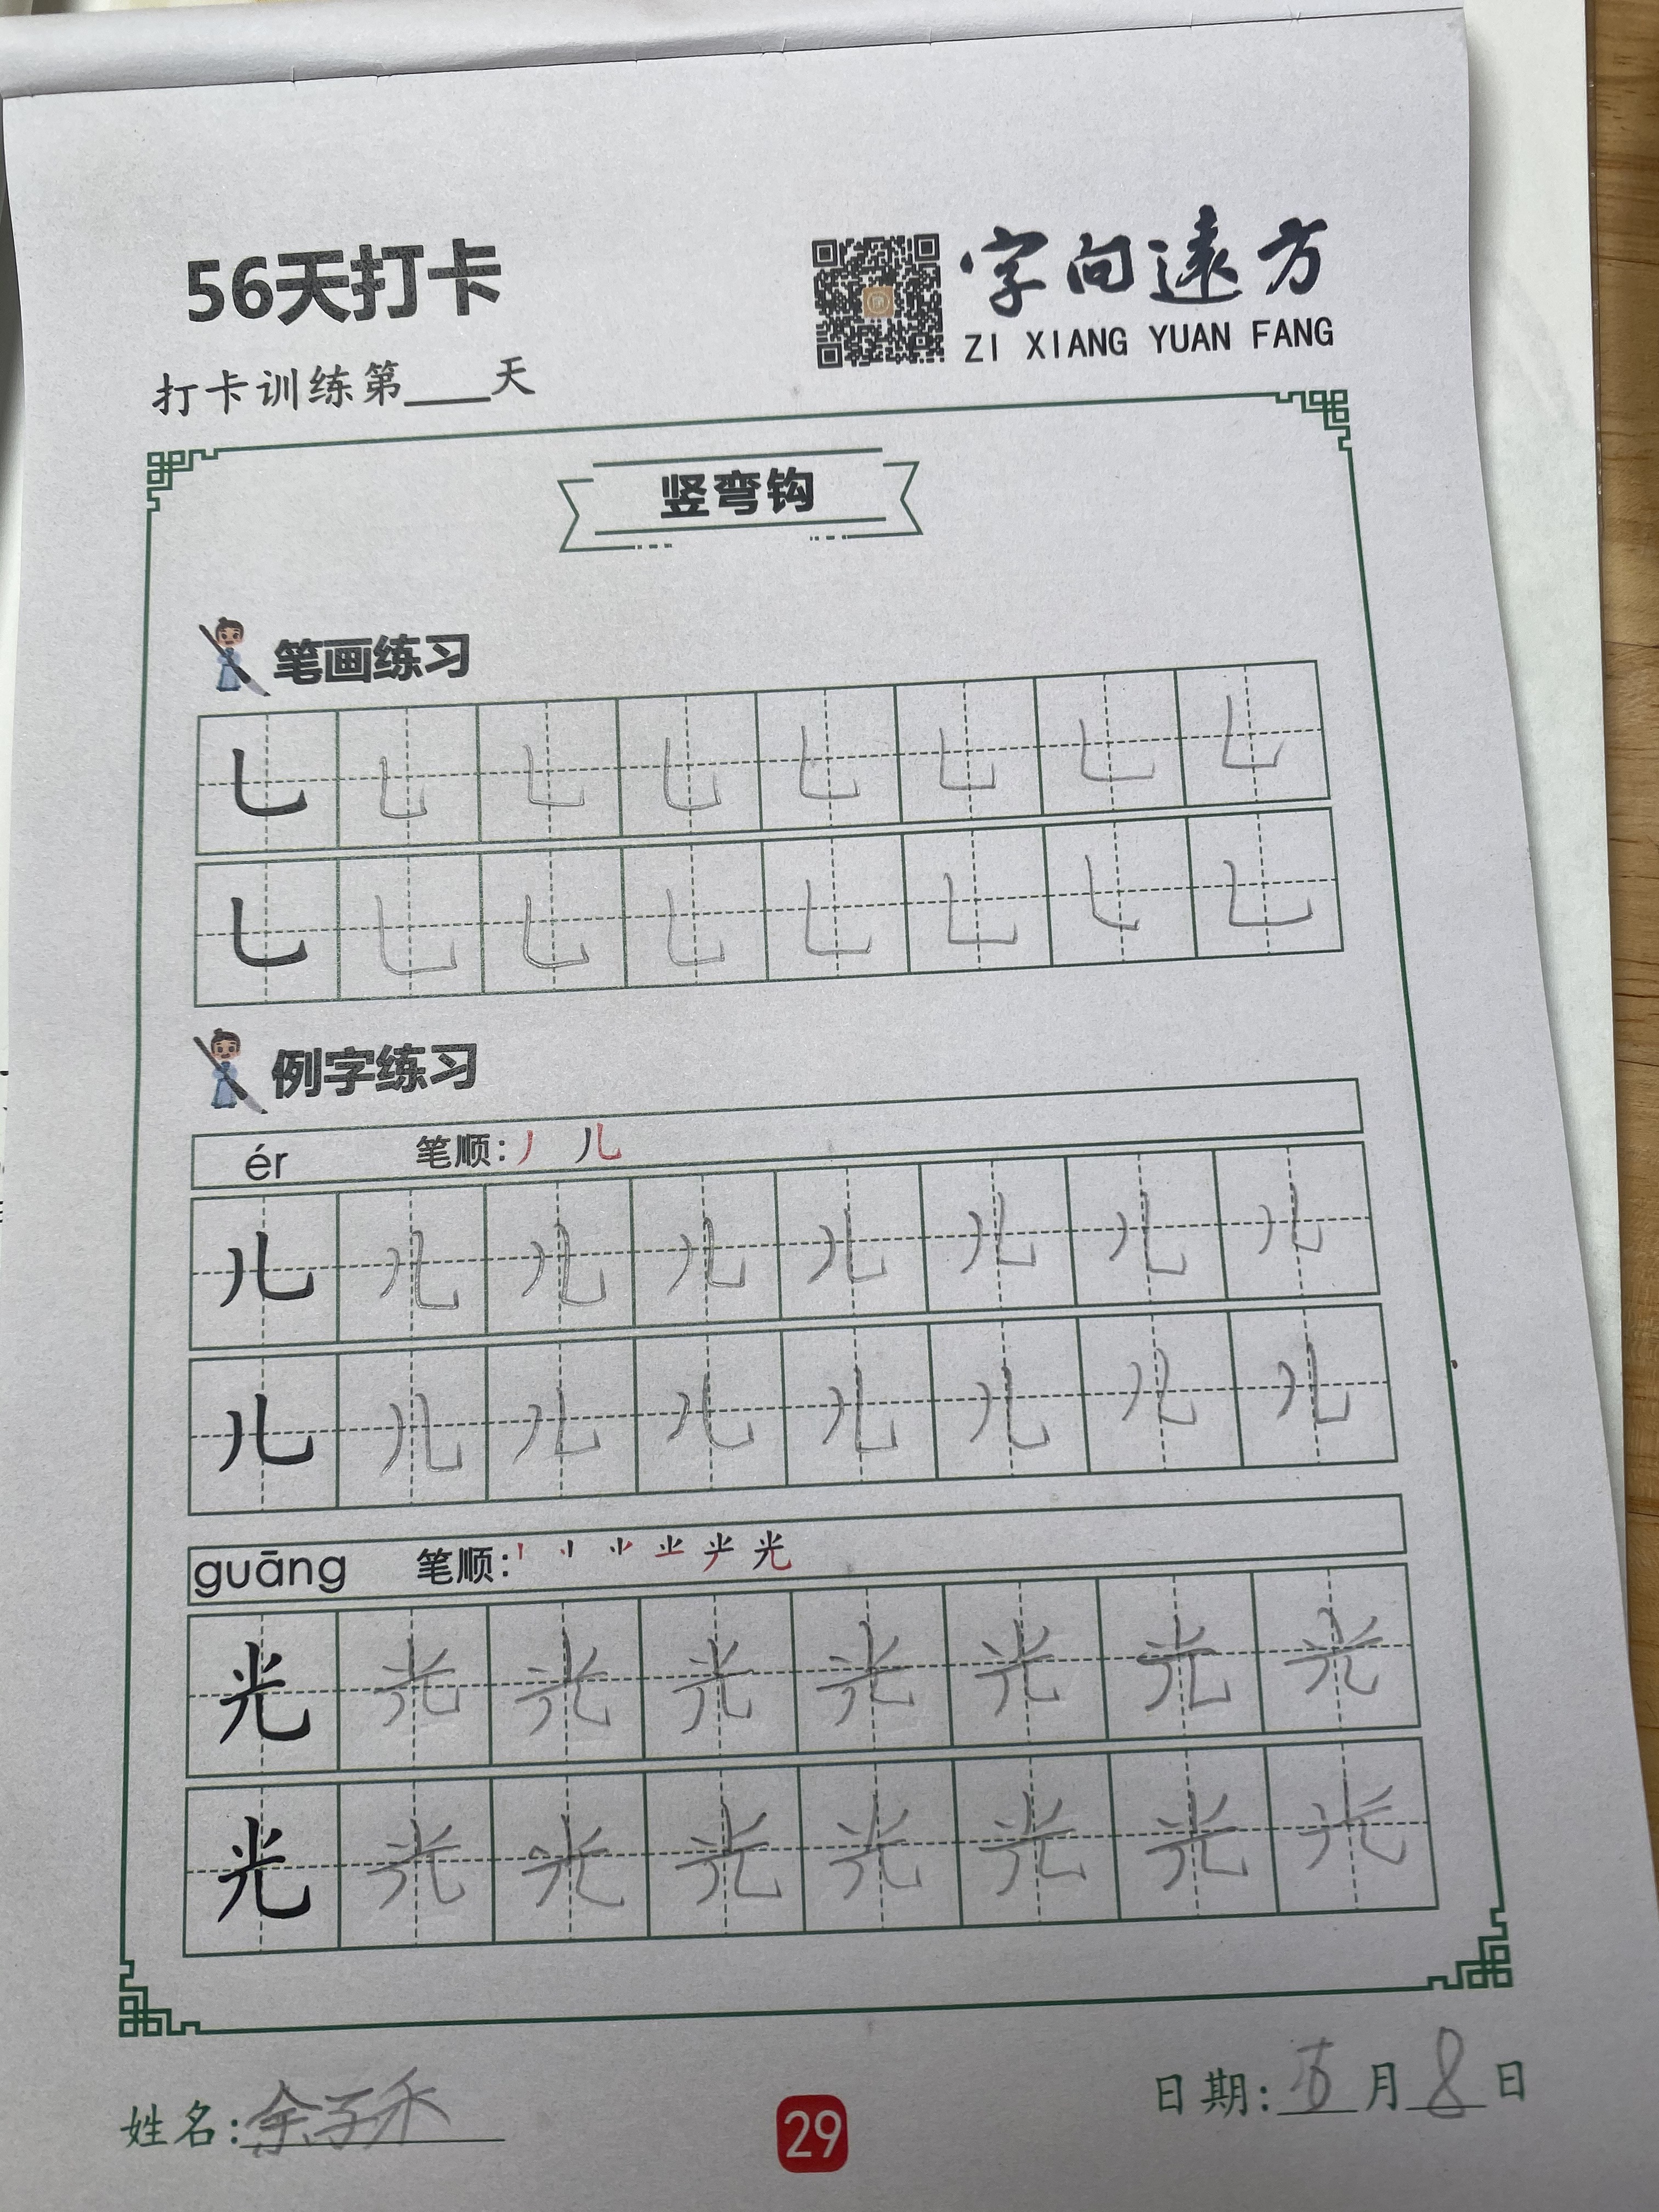 56天打卡
字向遠方
ZI XIANG YUAN FANG
打卡训练第____天
竖弯钩
笔画练习
乚 乚 乚 乚 乚 乚 乚 乚
乚 乚 乚 乚 乚 乚 乚 乚
例字练习
ér 笔顺：丿 儿
儿 儿 儿 儿 儿 儿 儿 儿
儿 儿 儿 儿 儿 儿 儿 儿
guāng 笔顺： 光
光 光 光 光 光 光 光 光
光 光 光 光 光 光 光 光
姓名：余子禾
29
日期：五月8日